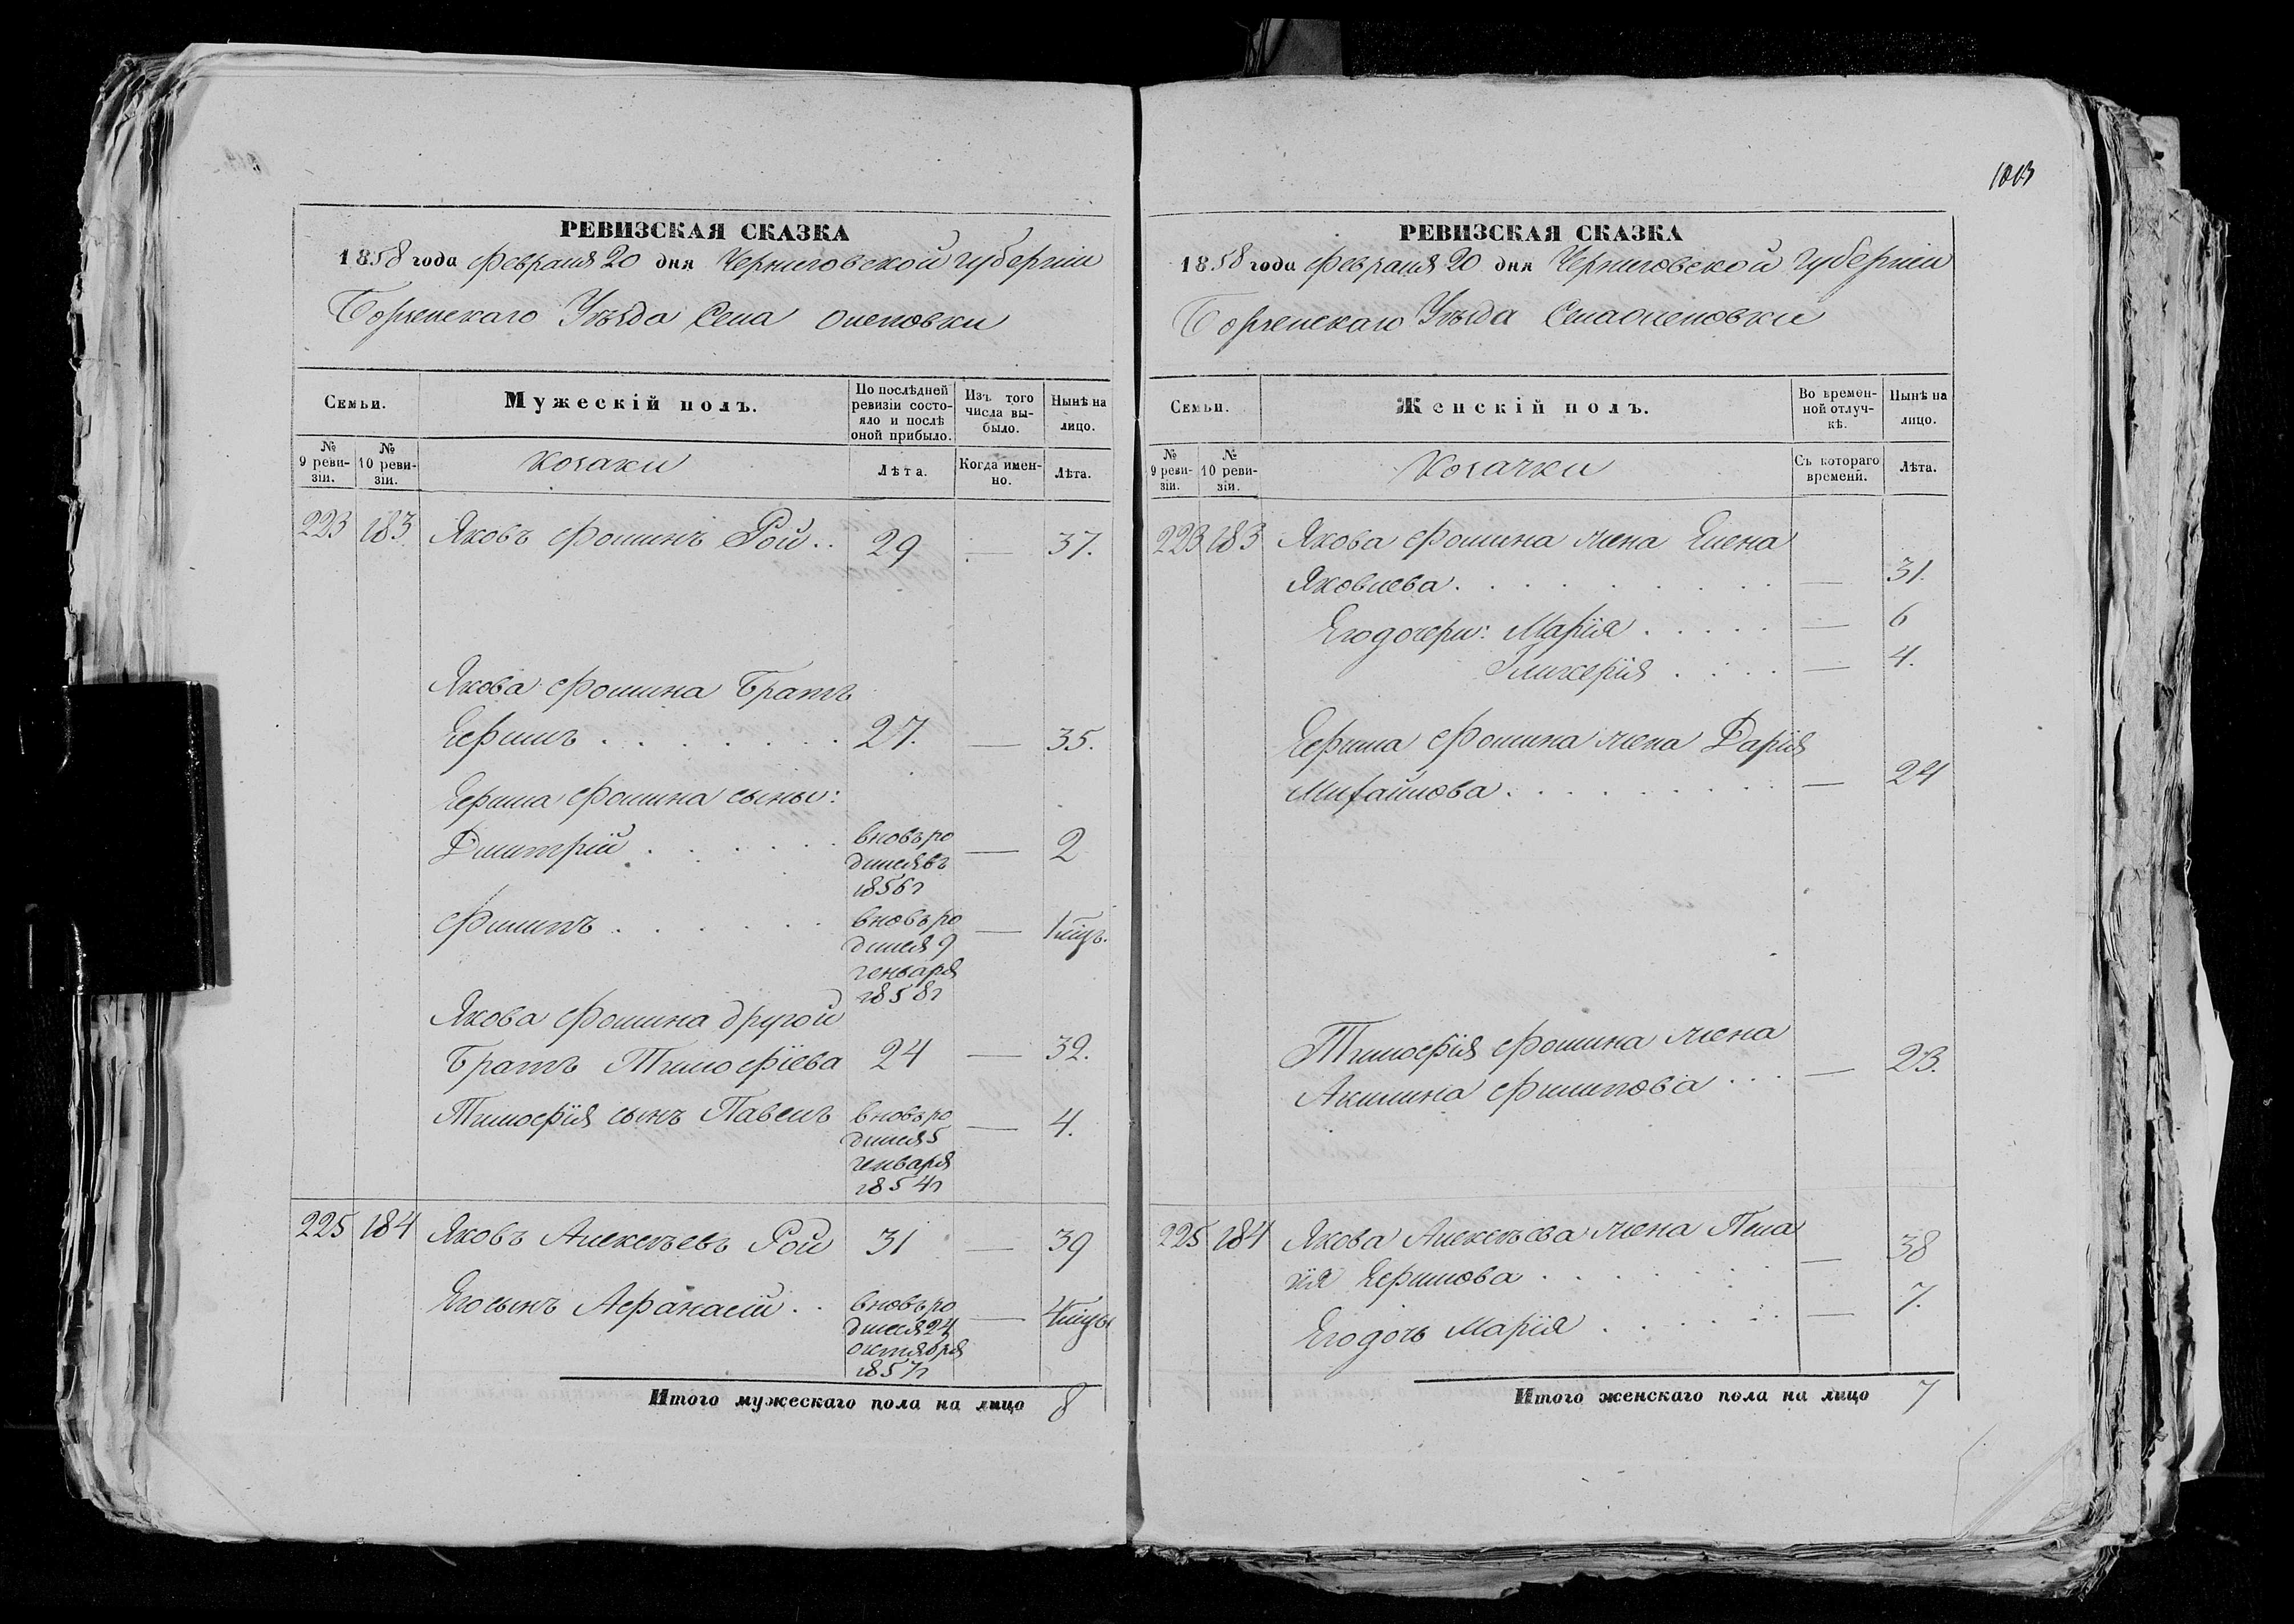 РЕВИЗСКАЯ СКАЗКА
1858 года Февраля 20 дня Черниговской губерніи
Борзенскаго Уѣзда Села Оленовки
Семьи.
Мужескій полъ.
По послѣдней ревизіи состояло и послѣ оной прибыло.
Изъ того числа выбыло.
Нынѣ на лицо.
№ 9 ревизіи.
№ 10 ревизіи.
козаки
Лѣта.
Когда именно.
Лѣта.
223 183 Яковъ Фоминъ Рой .. 29 — 37.
Якова Фомина Братъ
Ефимъ . . . . . . . 27. — 35.
Ефима Фомина сыны:
Дмитрій . . . . . . вновь ро — 2
дился въ
1856 г
Филипъ . . . . . . вновь ро — 1 мцъ.
дился 9
генваря
1858 г
Якова Фомина другой
Братъ Тимофіева 24 — 32.
Тимофія сынъ Павелъ вновь ро — 4.
дился 5
генваря
1854 г
225 184 Яковъ Алексѣевъ Рой 31 — 39
Его сынъ Афанасій .. вновь ро — 4 мцы
дился 24
октября
1857 г
Итого мужескаго пола на лицо 8
РЕВИЗСКАЯ СКАЗКА
1858 года Февраля 20 дня Черниговской Губерніи
Борзенскаго Уѣзда Села Оленовки
Семьи.
Женскій полъ.
Во временной отлучкѣ.
Нынѣ на лицо.
№ 9 ревизіи.
№ 10 ревизіи.
Козачки
Съ котораго времени.
Лѣта.
223 183 Якова Фомина жена Елена
Яковлева . . . . . . . . — 31.
Его дочери: Марія . . . . . — 6
Гликерія . . . . — 4.
Ефима Фомина жена Дарія
Михайлова . . . . . . . . — 24
Тимофія Фомина жена
Акилина Филипова . . . — 23.
225 184 Якова Алексѣева жена Пела
гія Ефимова . . . . . . . — 38
Его дочь Марія . . . . . . — 7.
Итого женскаго пола на лицо 7